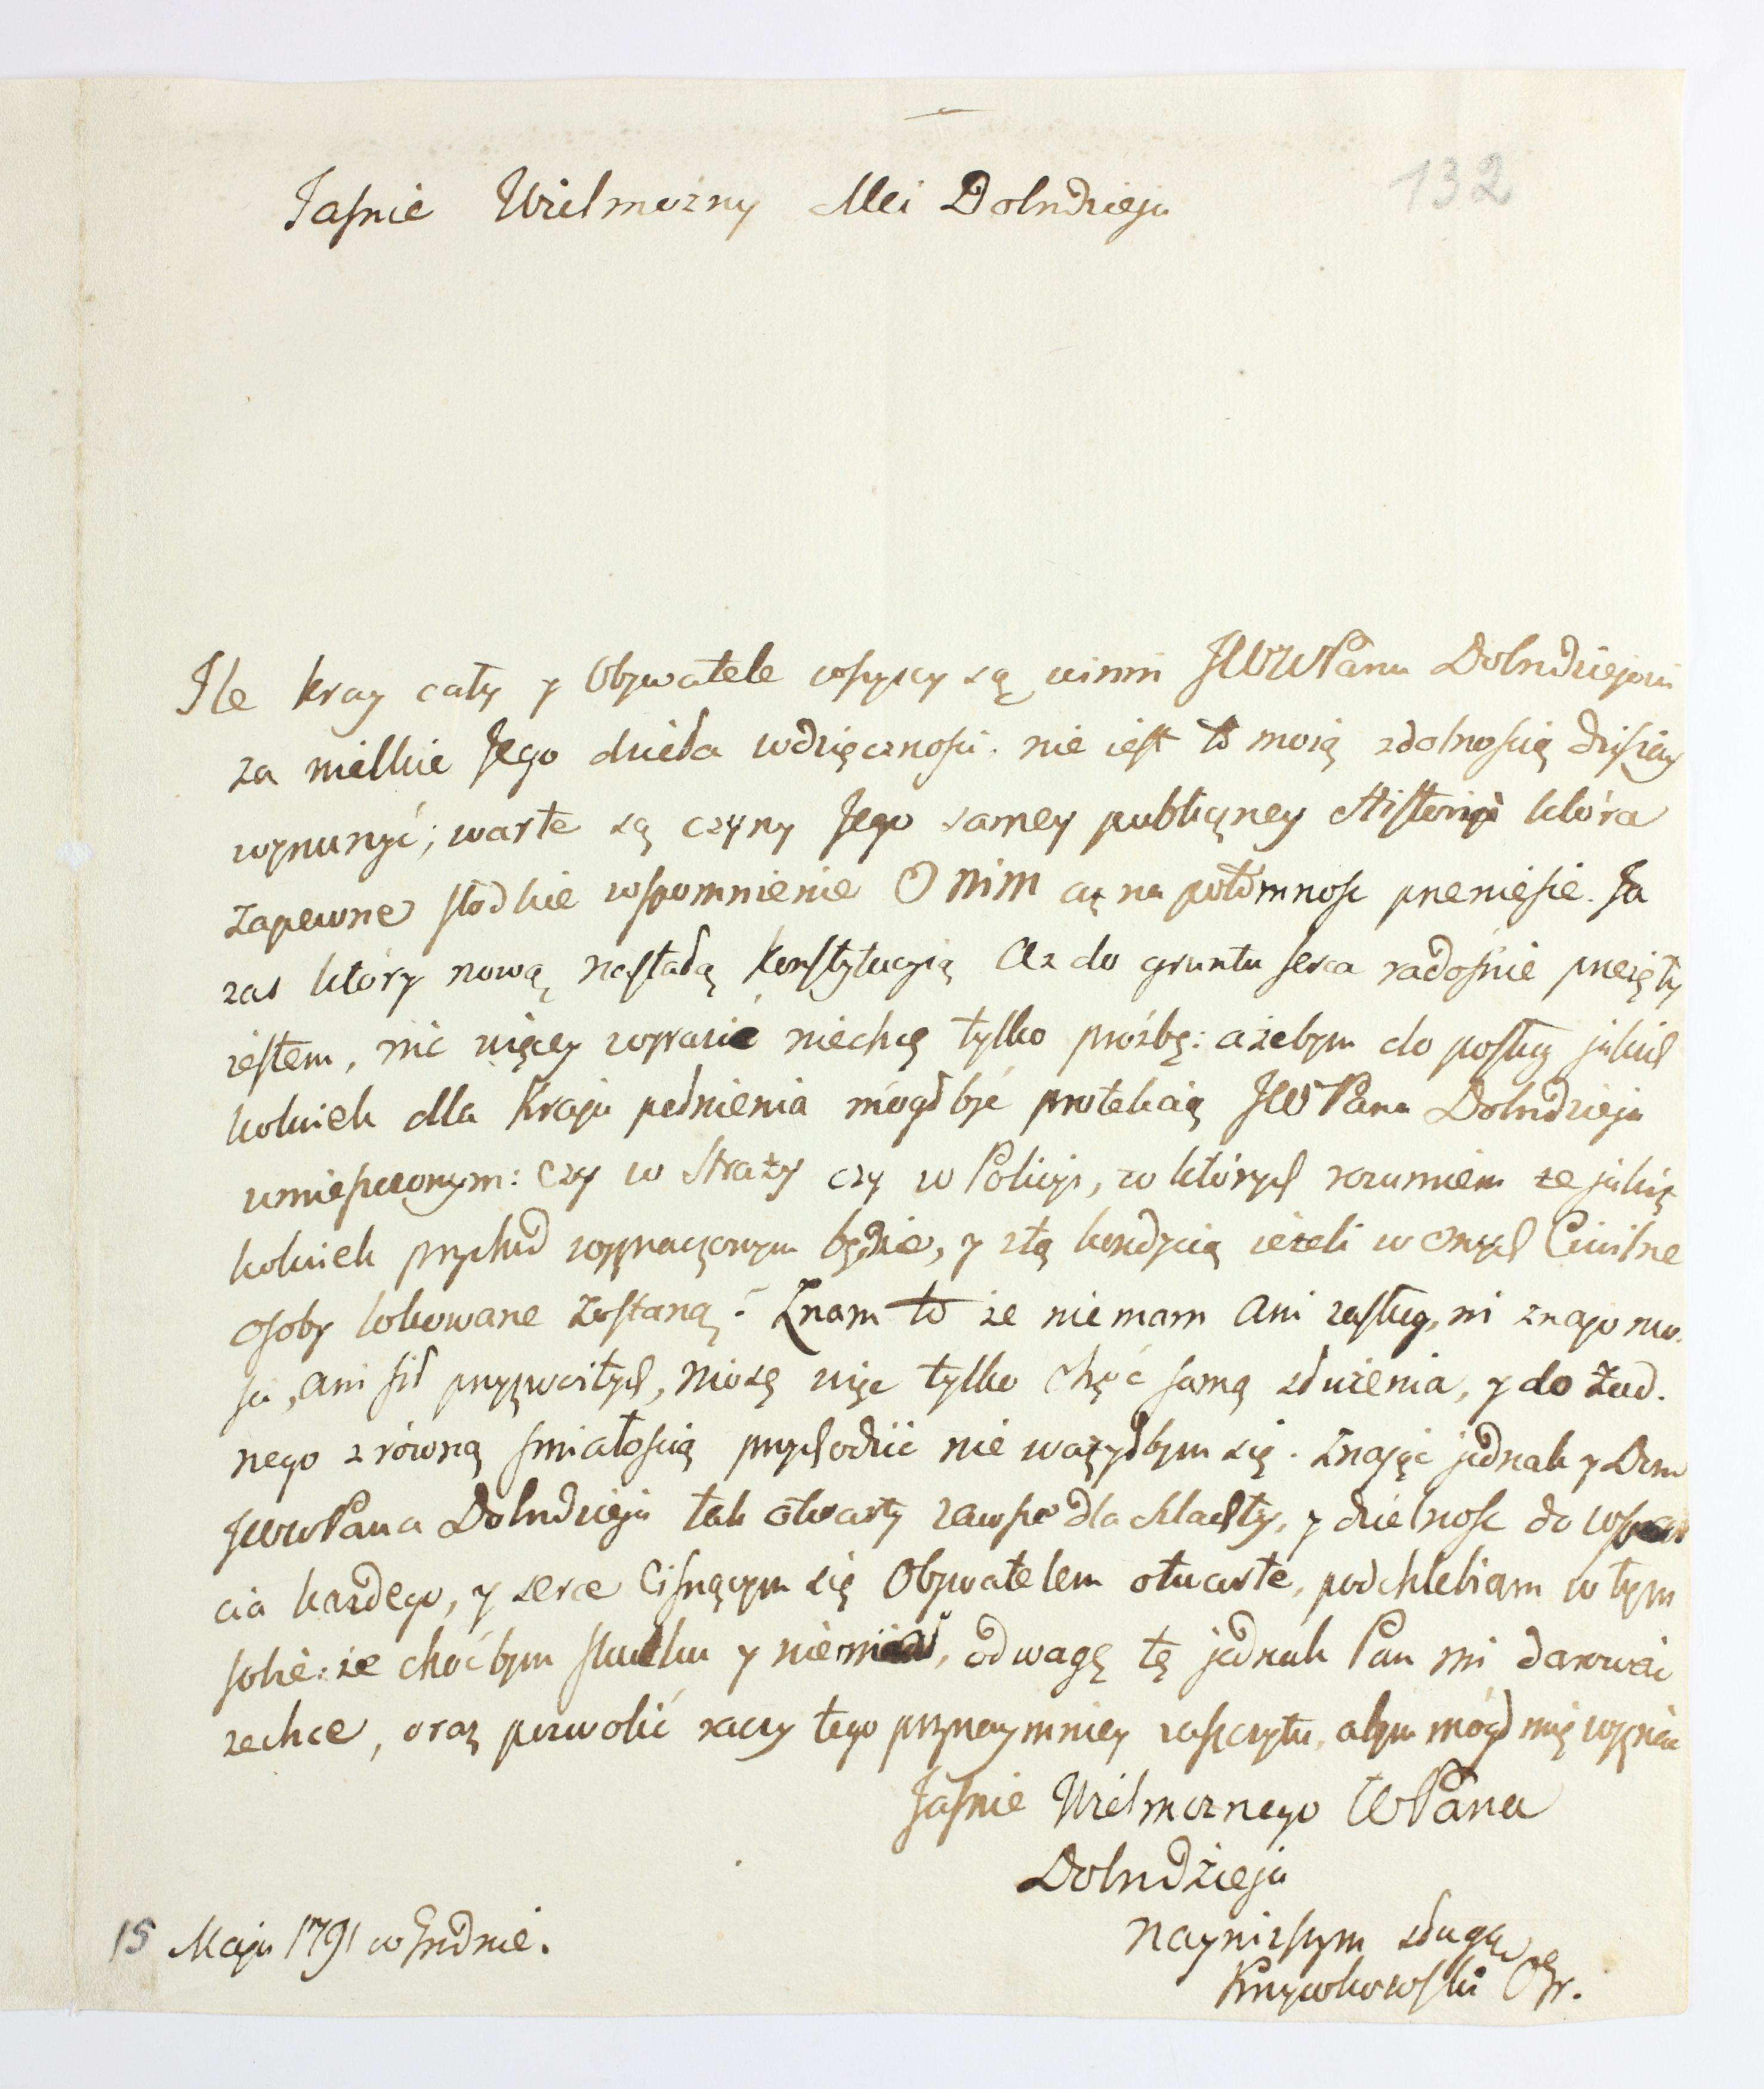 132
Jaśnie Wielmożny Mci Dobrodzieju
Ile kray cały y Obywatele wszyscy są winni JWWPanu Dobrodziejowi
za wielkie Jego dzieła wdzięczności, nie iest to moią zdolnością dzisiay
wynurzyć; warte są czyny Jego samey publiczney Historyi która
zapewne słodkie wspomnienie O nim aż na potomność przeniesie. Ja
zaś który nową nastałą Konstytucyią Aż do gruntu serca radośnie przeięty
iestem, nic więcey wyrazić niechcę tylko prożbę: ażebym do posług jakich
kolwiek dla Kraju pełnienia mógł być protekcią JWPana Dobrodzieja
umieszczonym: czy w Straży czy w Policyi, w których rozumiem że jakiś
kolwiek przychod wyznaczonym będzie, y z tą kondycią ieżeli w onych Civilne
osoby lokowane zostaną. Znam to że nie mam ani zasług, ni znajomo-
ści, ani sił przyzwoitych, niosę więc tylko chęć samą służenia, y do żad-
nego z równą śmiałością przychodzić nie ważyłbym się. Znając jednak y Dom
JWWPana Dobrodzieja tak otwarty zawsze dla Szlachty, y dzielność do wspar
cia każdego, y serce Cisnącym się Obywatelem otwarte, podchlebiam w tym
sobie: że choćbym skutku y niemiał, odwagę tę jednak Pan mi darować
zechce, oraz pozwolić raczy tego przynaymniey zaszczytu, abym mógł się wyznać
Jaśnie Wielmożnego WPana
Dobrodzieja
Nayniższym sługą
Krzywkowski
15 Maja 1791 w Grodnie.